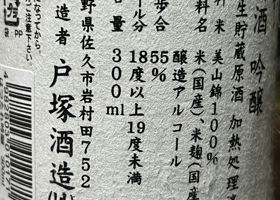 酒 吟醸
生貯蔵原酒 加熱処理済
料米 美山錦100%
料名 米(国産)、米麹(国産
醸造アルコール
歩合 55%
ール分 18度以上19度未満
量 300ml
野県佐久市岩村田752
造者 戸塚酒造㈱
なってから。
ご注意下さい
PP